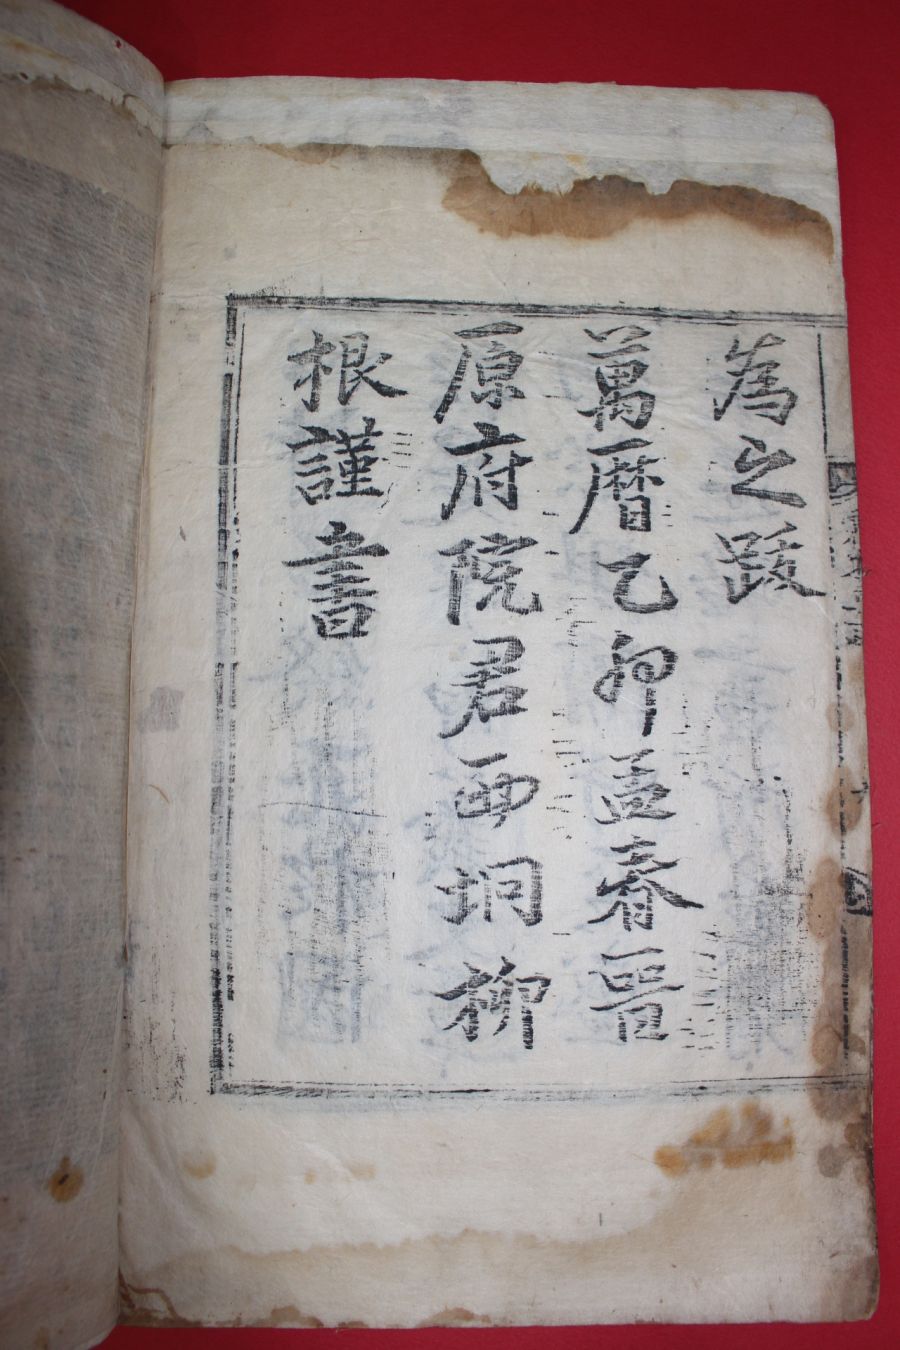 為之跋
萬曆乙卯孟春晋
原府院君西坰柳
根謹書